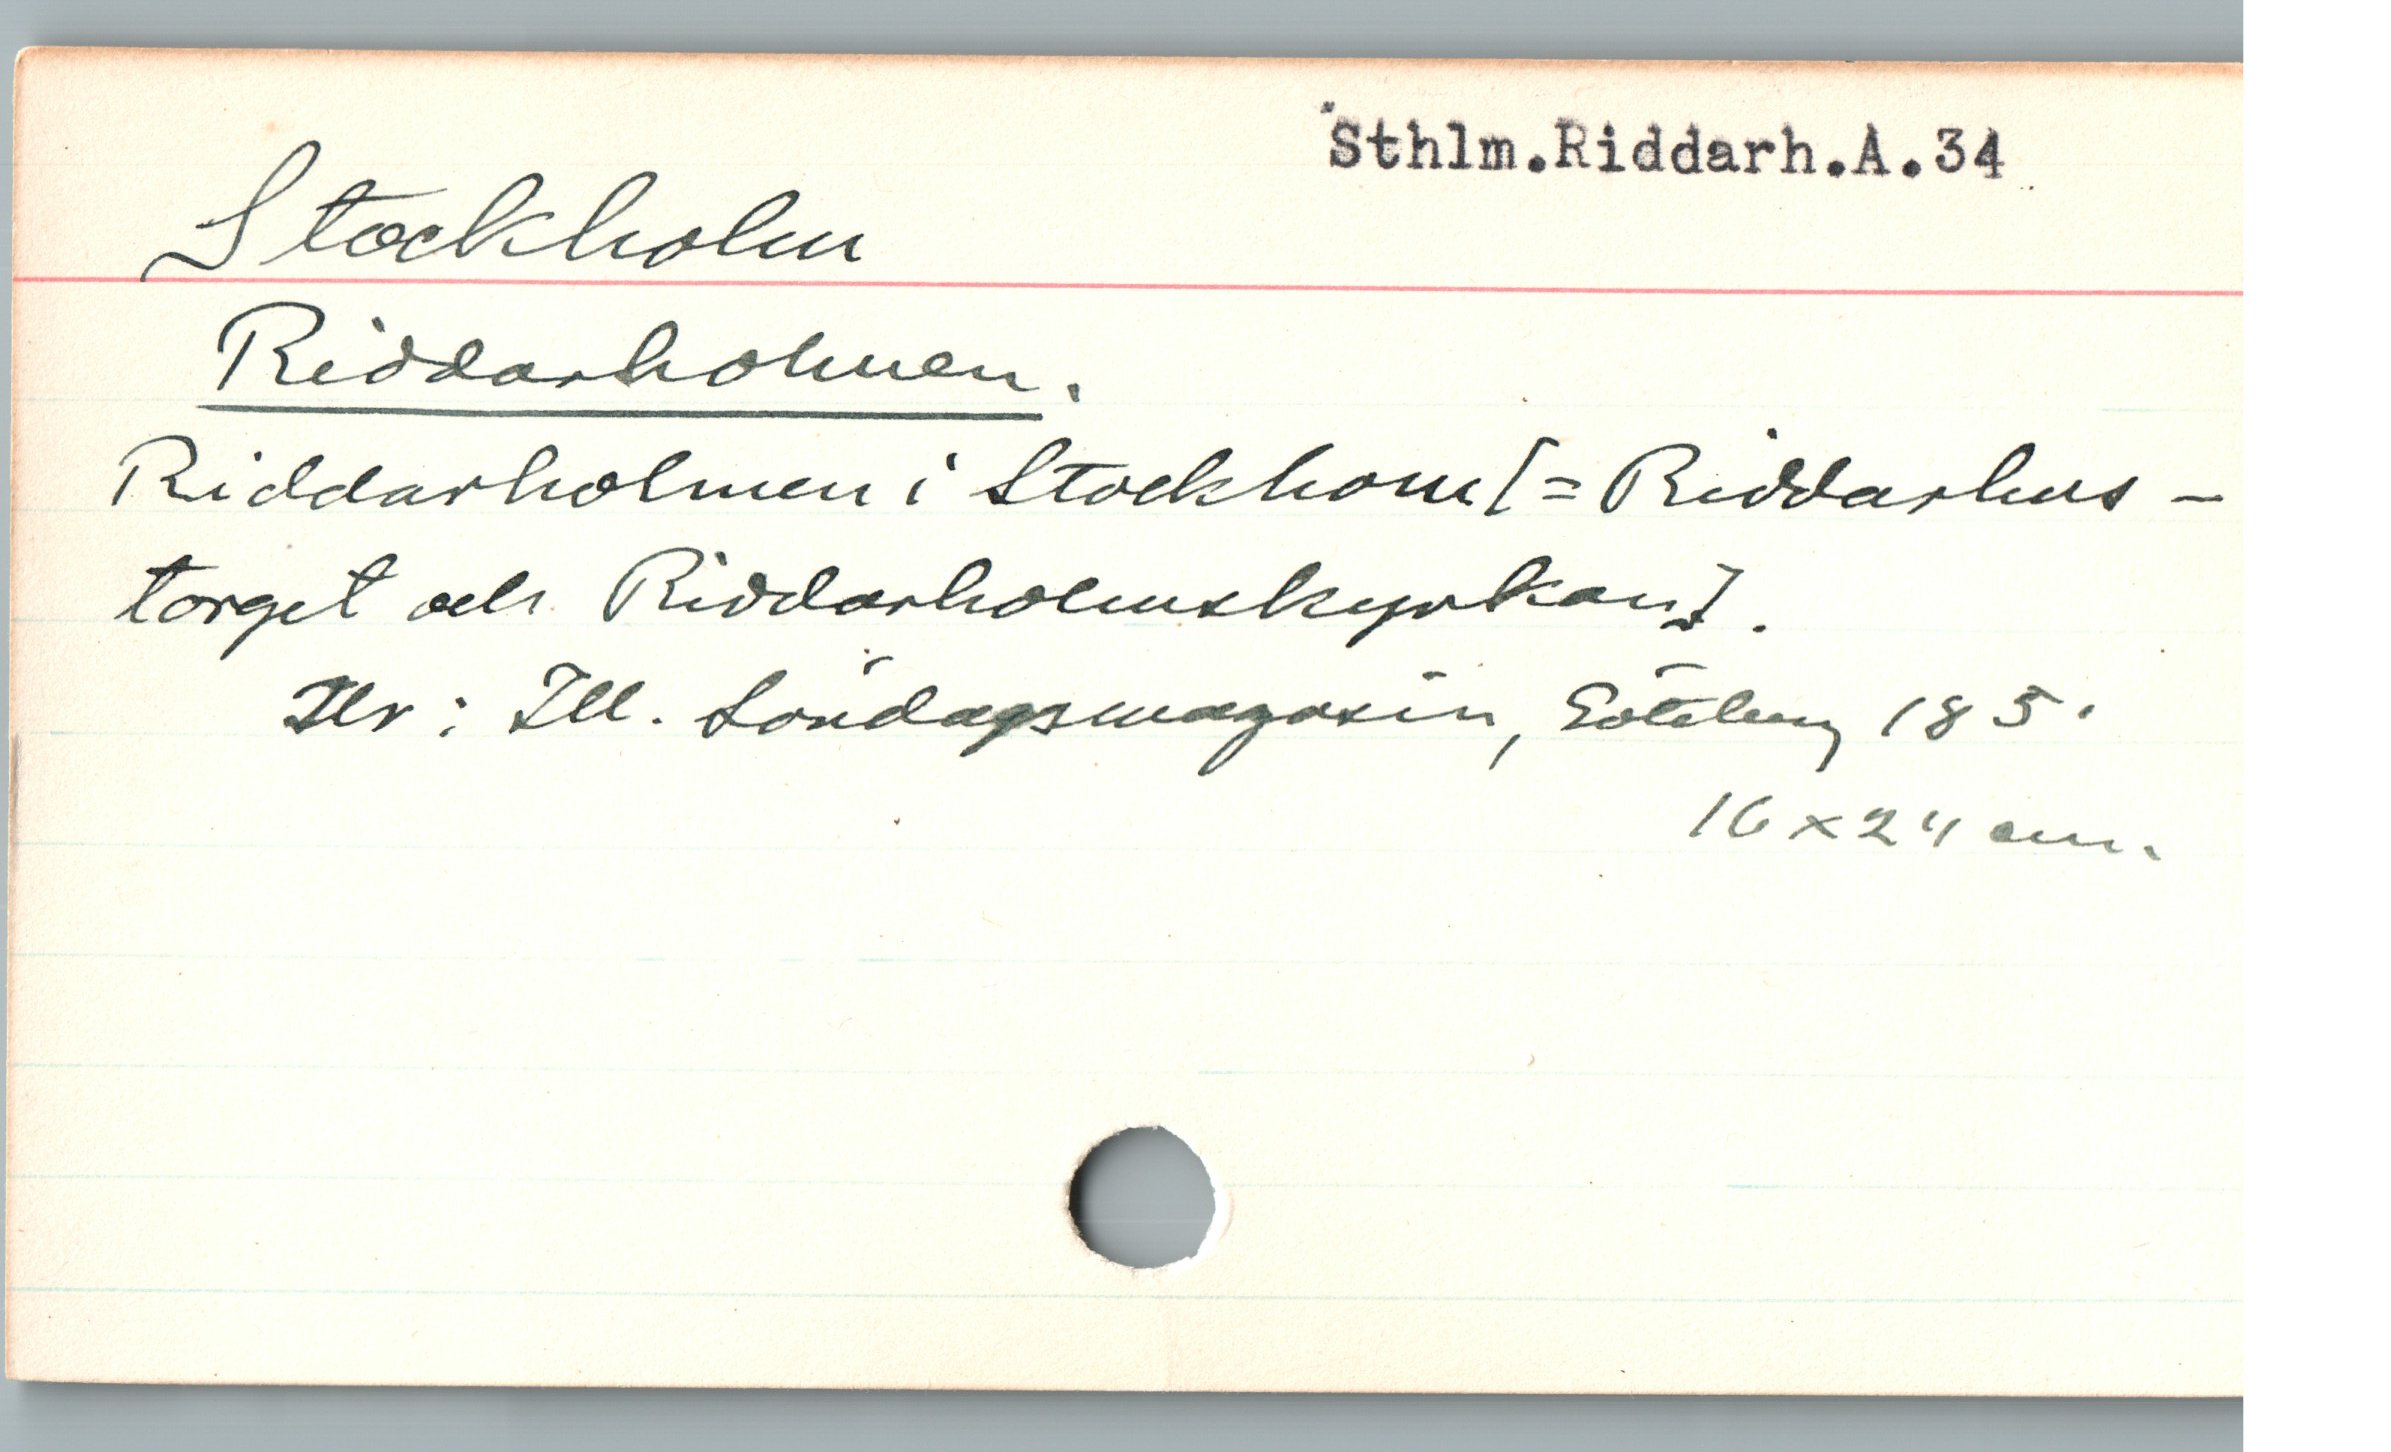 Sthlm.Riddarh.A.34
Stockholm
Riddarholmen.
Riddarholmen i Stockhom [= Riddarhus-
torget och Riddarholmskyrkan].
Ill. Söndagsmagasin, Göteborg 185.
16 x 24 cm.